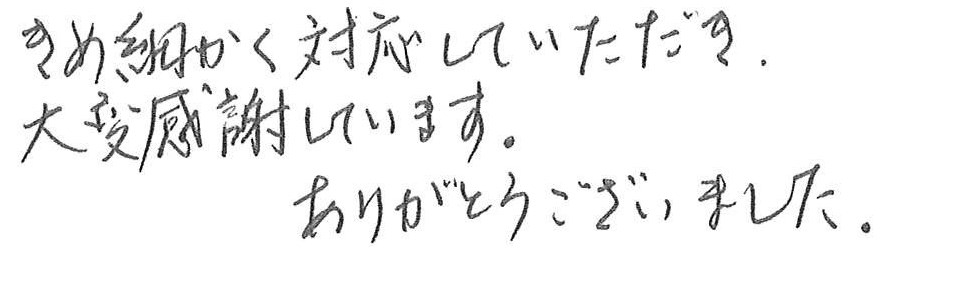 きめ細かく対応していただき、
大変感謝しています。
ありがとうございました。